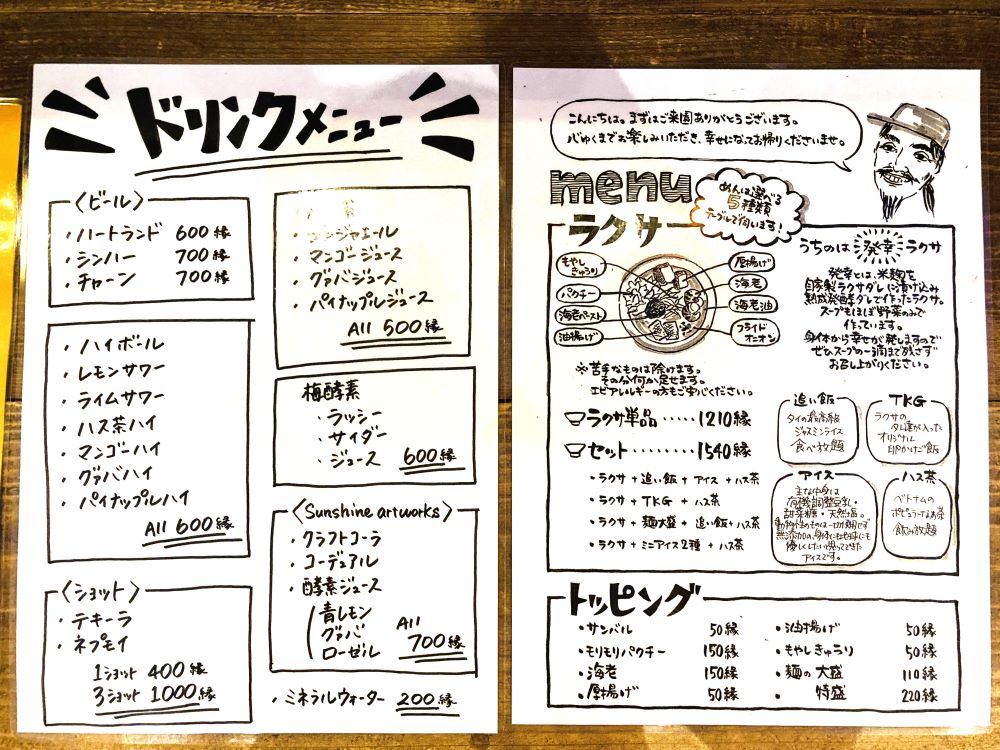 ドリンクメニュー
〈ビール〉
・ハートランド 600縁
・シンハー 700縁
・チャーン 700縁
・ハイボール
・レモンサワー
・ライムサワー
・ハス茶ハイ
・マンゴーハイ
・グァバハイ
・パイナップルハイ
All 600縁
〈ショット〉
・テキーラ
・ネプモイ
1ショット 400縁
3ショット 1000縁
茶
・ジンジャエール
・マンゴージュース
・グァバジュース
・パイナップルジュース
All 500縁
梅酵素
・ラッシー
・サイダー
・ジュース 600縁
〈Sunshine artworks〉
・クラフトコーラ
・コーデュアル
・酵素ジュース
青レモン
グァバ
ローゼル
All
700縁
・ミネラルウォーター 200縁
こんにちは。まずはご来園ありがとうございます。
心ゆくまでお楽しみいただき、幸せになってお帰りくださいませ。
menu
めんは選べる
5種類
テーブルで伺います!
ラクサー
もやし
きゅうり
パクチー
海老ペースト
油揚げ
厚揚げ
海老
海老油
フライド
オニオン
※苦手なものは除けます。
その分何か足せます。
エビアレルギーの方もご安心ください。
うちのは発幸ラクサ
発幸とは、米麹を
自家製ラクサダレに漬け込み
熟成発酵ダレで作ったラクサ。
スープもほぼ野菜のみで
作っています。
身体から幸せが発しますので
ぜひスープの一滴まで残さず
お召し上がりください。
ラクサ単品・・・・・・1210縁
セット・・・・・・1540縁
・ラクサ + 追い飯 + アイス + ハス茶
・ラクサ + TKG + ハス茶
・ラクサ + 麺大盛 + 追い飯 + ハス茶
・ラクサ + ミニアイス2種 + ハス茶
追い飯
タイの最高級
ジャスミンライス
食べ放題
TKG
ラクサの
タレ達が入った
オリジナル
卵かけご飯
アイス
主な中身は
有機調整豆乳・
甜菜糖・天然塩。
動物性のものは一切使用せず
無添加の、身体にも地球にも
優しくしたい想ってできた
アイスです。
ハス茶
ベトナムの
ポピュラーなお茶
飲み放題
トッピング
・サンバル 50縁
・モリモリパクチー 150縁
・海老 150縁
・厚揚げ 50縁
・油揚げ 50縁
・もやしきゅうり 50縁
・麺の大盛 110縁
特盛 220縁